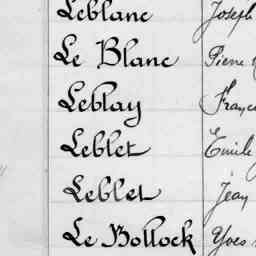 Leblanc Joseph
Le Blanc Pierre
Leblay Franço
Leblet Emile
Leblet Jean
Le Bollock Yves